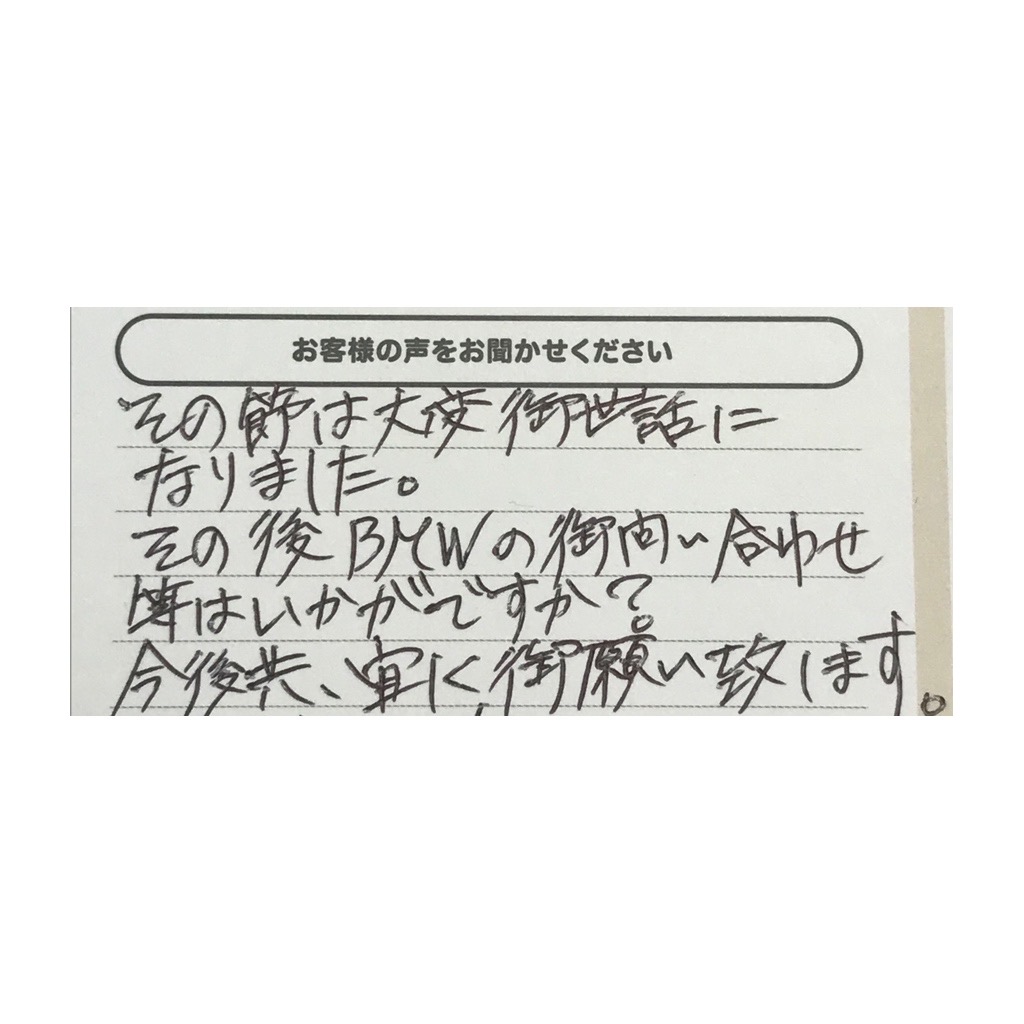 お客様の声をお聞かせください
その節は大変御世話に
なりました。
その後BMWの御問い合わせ
等はいかがですか?
今後共、宜しく御願い致します。